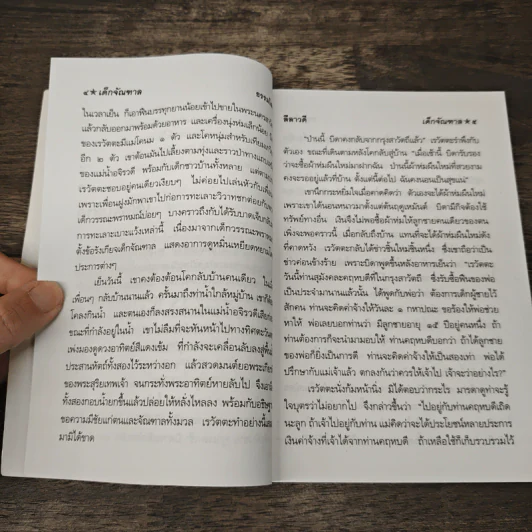 ๔ ★ เด็กจัณฑาล
ในเวลาเย็น ก็เอาฟืนบรรทุกยานน้อยเข้าไปขายในพระนคร
แล้วกลับออกมาพร้อมด้วยอาหาร และเครื่องนุ่งห่มเล็กน้อย
ของเรวัตตะมีแม่โคนม ๑ ตัว และโคหนุ่มสำหรับเทียม
อีก ๒ ตัว เขาต้อนมันไปเลี้ยงตามทุ่งและราวป่าทาง
ของแม่น้ำอจิรวดี พร้อมกับเด็กชาวบ้านทั้งหลาย แต่
เรวัตตะชอบอยู่คนเดียวเงียบๆ ไม่ค่อยไปเล่นหัวกับ
เพราะเพื่อนฝูงมักพาเขาไปก่อการทะเลาะวิวาทชกต่อยกับ
เด็กวรรณะพราหมณ์บ่อยๆ บางคราวถึงกับได้รับบาดเจ็บ
การทะเลาะเบาะแว้งเหล่านี้ เนื่องมาจากเด็กวรรณะ
ตั้งข้อรังเกียจเด็กจัณฑาล แสดงอาการดูหมิ่นเหยียดหยาม
ประการต่างๆ
เย็นวันนี้ เขาคงต้องต้อนโคกลับบ้านคนเดียว
เพื่อนๆ กลับบ้านนานแล้ว ครั้นมาถึงท่าน้ำใกล้หมู่บ้าน เขาก็
โคลงกินน้ำ และตนเองก็ลงสรงสนานในแม่น้ำอจิรวดี
ขณะที่กำลังอยู่ในน้ำ เขาไม่ลืมที่จะหันหน้าไปทางทิศตะวัน
เพ่งมองดูดวงอาทิตย์สีแดงเข้ม ที่กำลังจะเคลื่อนลับลงสู่พื้น
ประสานหัตถ์ทั้งสองไว้ระหว่างอก แล้วสวดมนต์ยอพระเกียรติ
ของพระสุริยเทพเจ้า จนกระทั่งพระอาทิตย์หายลับไป จึงเอา
ทั้งสองกอบน้ำยกขึ้นแล้วปล่อยให้หลั่งไหลลง พร้อมกับอธิษฐาน
ขอความมีชัยแก่ตนและจัณฑาลทั้งมวล เรวัตตะทำอย่างนี้
มามิได้ขาด
ลีลาวดี
เด็กจัณฑาล ★ ๕
"ป่านนี้ บิดาคงกลับจากกรุงสาวัตถีแล้ว" เรวัตตะรำพึงกับ
ตัวเอง ขณะที่เดินตามหลังโคกลับสู่บ้าน "เมื่อเช้านี้ บิดารับรอง
ว่าจะซื้อผ้าห่มผืนใหม่มาฝากฉัน ป่านนี้ผ้าห่มผืนใหม่ที่สวยงาม
คงจะรออยู่แล้วที่บ้าน ตั้งแต่นี้ต่อไป ฉันคงนอนเป็นสุขแน่"
เขานึกกระหยิ่มใจเมื่อคาดคิดว่า ตัวเองจะได้ผ้าห่มผืนใหม่
เพราะเขาได้นอนหนาวมาตั้งแต่ต้นฤดูเหมันต์ บิดามีกิจต้องใช้
ทรัพย์ทางอื่น เงินจึงไม่พอซื้อผ้าห่มให้ลูกชายคนเดียวของตน
เพิ่งจะพอคราวนี้ เมื่อกลับถึงบ้าน แทนที่จะได้ผ้าห่มผืนใหม่ดัง
ที่คาดหวัง เรวัตตะกลับได้ข่าวชิ้นใหม่ชิ้นหนึ่ง ซึ่งเขาถือว่าเป็น
ข่าวค่อนข้างร้าย เพราะบิดาพูดขึ้นหลังอาหารเย็นว่า "เรวัตตะ
วันนี้ท่านสุมังคละคฤหบดีที่ในกรุงสาวัตถี ซึ่งรับซื้อฟืนของพ่อ
เป็นประจำมานานแล้วนั้น ได้พูดกับพ่อว่า ต้องการเด็กผู้ชายไว้
สักคน ท่านจะคิดค่าจ้างให้วันละ ๑ กหาปณะ ขอร้องให้พ่อช่วย
หาให้ พ่อเลยบอกท่านว่า มีลูกชายอายุ ๑๕ ปีอยู่คนหนึ่ง ถ้า
ท่านต้องการก็จะนำมามอบให้ ท่านคฤหบดีบอกว่า ถ้าได้ลูกชาย
ของพ่อก็ยิ่งเป็นการดี ท่านจะคิดค่าจ้างให้เป็นสองเท่า พ่อได้
ปรึกษากับแม่เจ้าแล้ว ตกลงกันว่าควรให้เจ้าไป เจ้าจะว่าอย่างไร?"
เรวัตตะนั่งก้มหน้านิ่ง มิได้ตอบว่ากระไร มารดาดูท่าจะรู้
ใจบุตรว่าไม่อยากไป จึงกล่าวขึ้นว่า "ไปอยู่กับท่านคฤหบดีเถิด
นะลูก ถ้าเจ้าไปอยู่กับท่าน แม่คิดว่าจะได้ประโยชน์หลายประการ
เงินค่าจ้างที่เจ้าได้จากท่านคฤหบดี ถ้าเหลือใช้ก็เก็บรวบรวมไว้